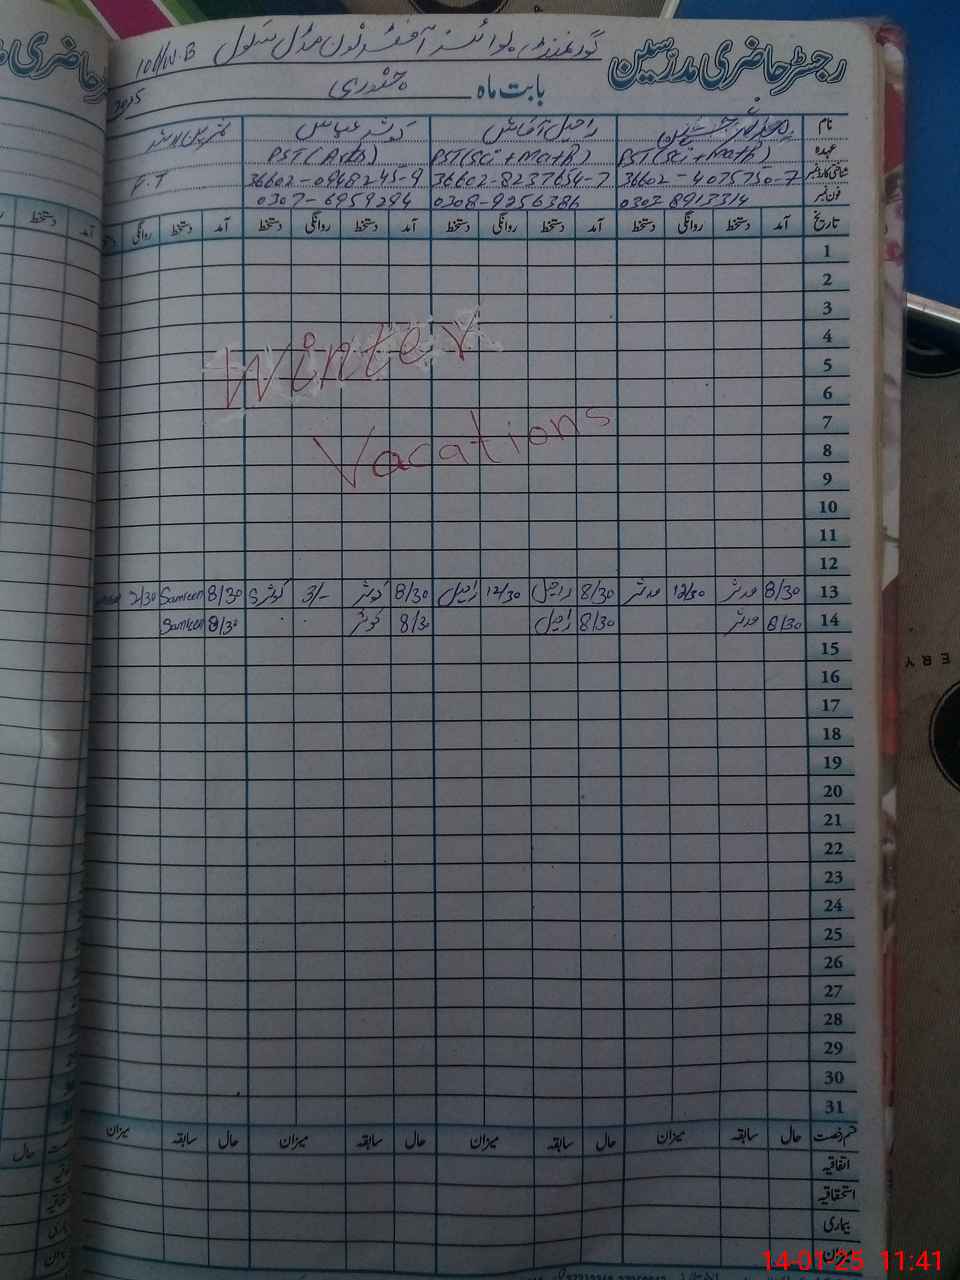 رجسٹر حاضری مدرسین گورنمنٹ بوائز آفٹر نون مڈل سکول 101/W.B
بابت ماہ جنوری 2025
نام راحیل آفاش کوثر عباس
عہدہ PST(Sci + Math) PST(Sci + Math) PST(Arts) F.T
شناختی کارڈ نمبر 36602-4075750-7 36602-8237654-7 36602-0968245-9
فون نمبر 0303 8913314 0308-9256386 0307-6959294
تاریخ آمد دستخط روانگی دستخط آمد دستخط روانگی دستخط آمد دستخط روانگی دستخط آمد دستخط روانگی
1
2
3
4
Winter
5
6
7
Vacations
8
9
10
11
12
13 8/30 مدثر 12/30 مدثر 8/30 راحیل 12/30 راحیل 8/30 کوثر 3/- کوثر 8/30 Samreen 2/30
14 8/30 مدثر 8/30 راحیل 8/30 کوثر 8/30 Samreen
15
16
17
18
19
20
21
22
23
24
25
26
27
28
29
30
31
قسم رخصت حال سابقہ میزان حال سابقہ میزان حال سابقہ میزان حال سابقہ میزان
اتفاقیہ
استحقاقیہ
بیماری
میزان
14-01-25 11:41